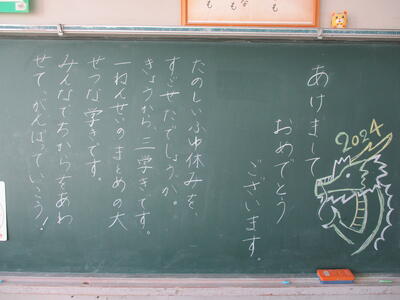 あけまして
おめでとう
ございます。
2024
たのしいふゆ休みを
すごせたでしょうか。
きょうから、三学きです。
一ねんせいのまとめの大
せつな学きです。
みんなでちからをあわ
せて、がんばっていこう！